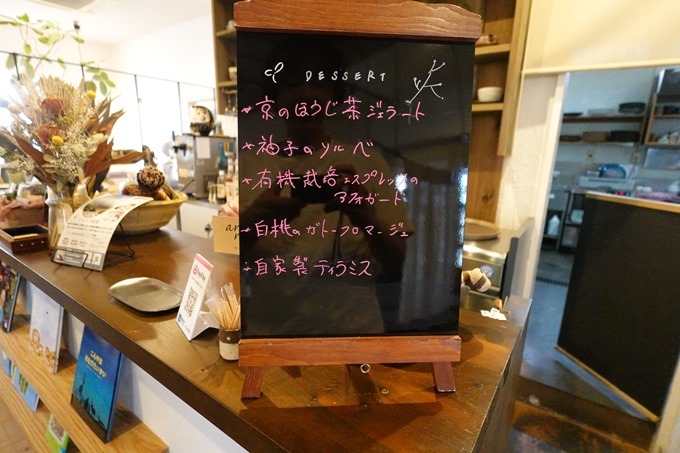 DESSERT
京のほうじ茶ジェラート
柚子のソルベ
有機栽培エスプレッソの
アフォガード
白桃のガトーフロマージュ
自家製ティラミス